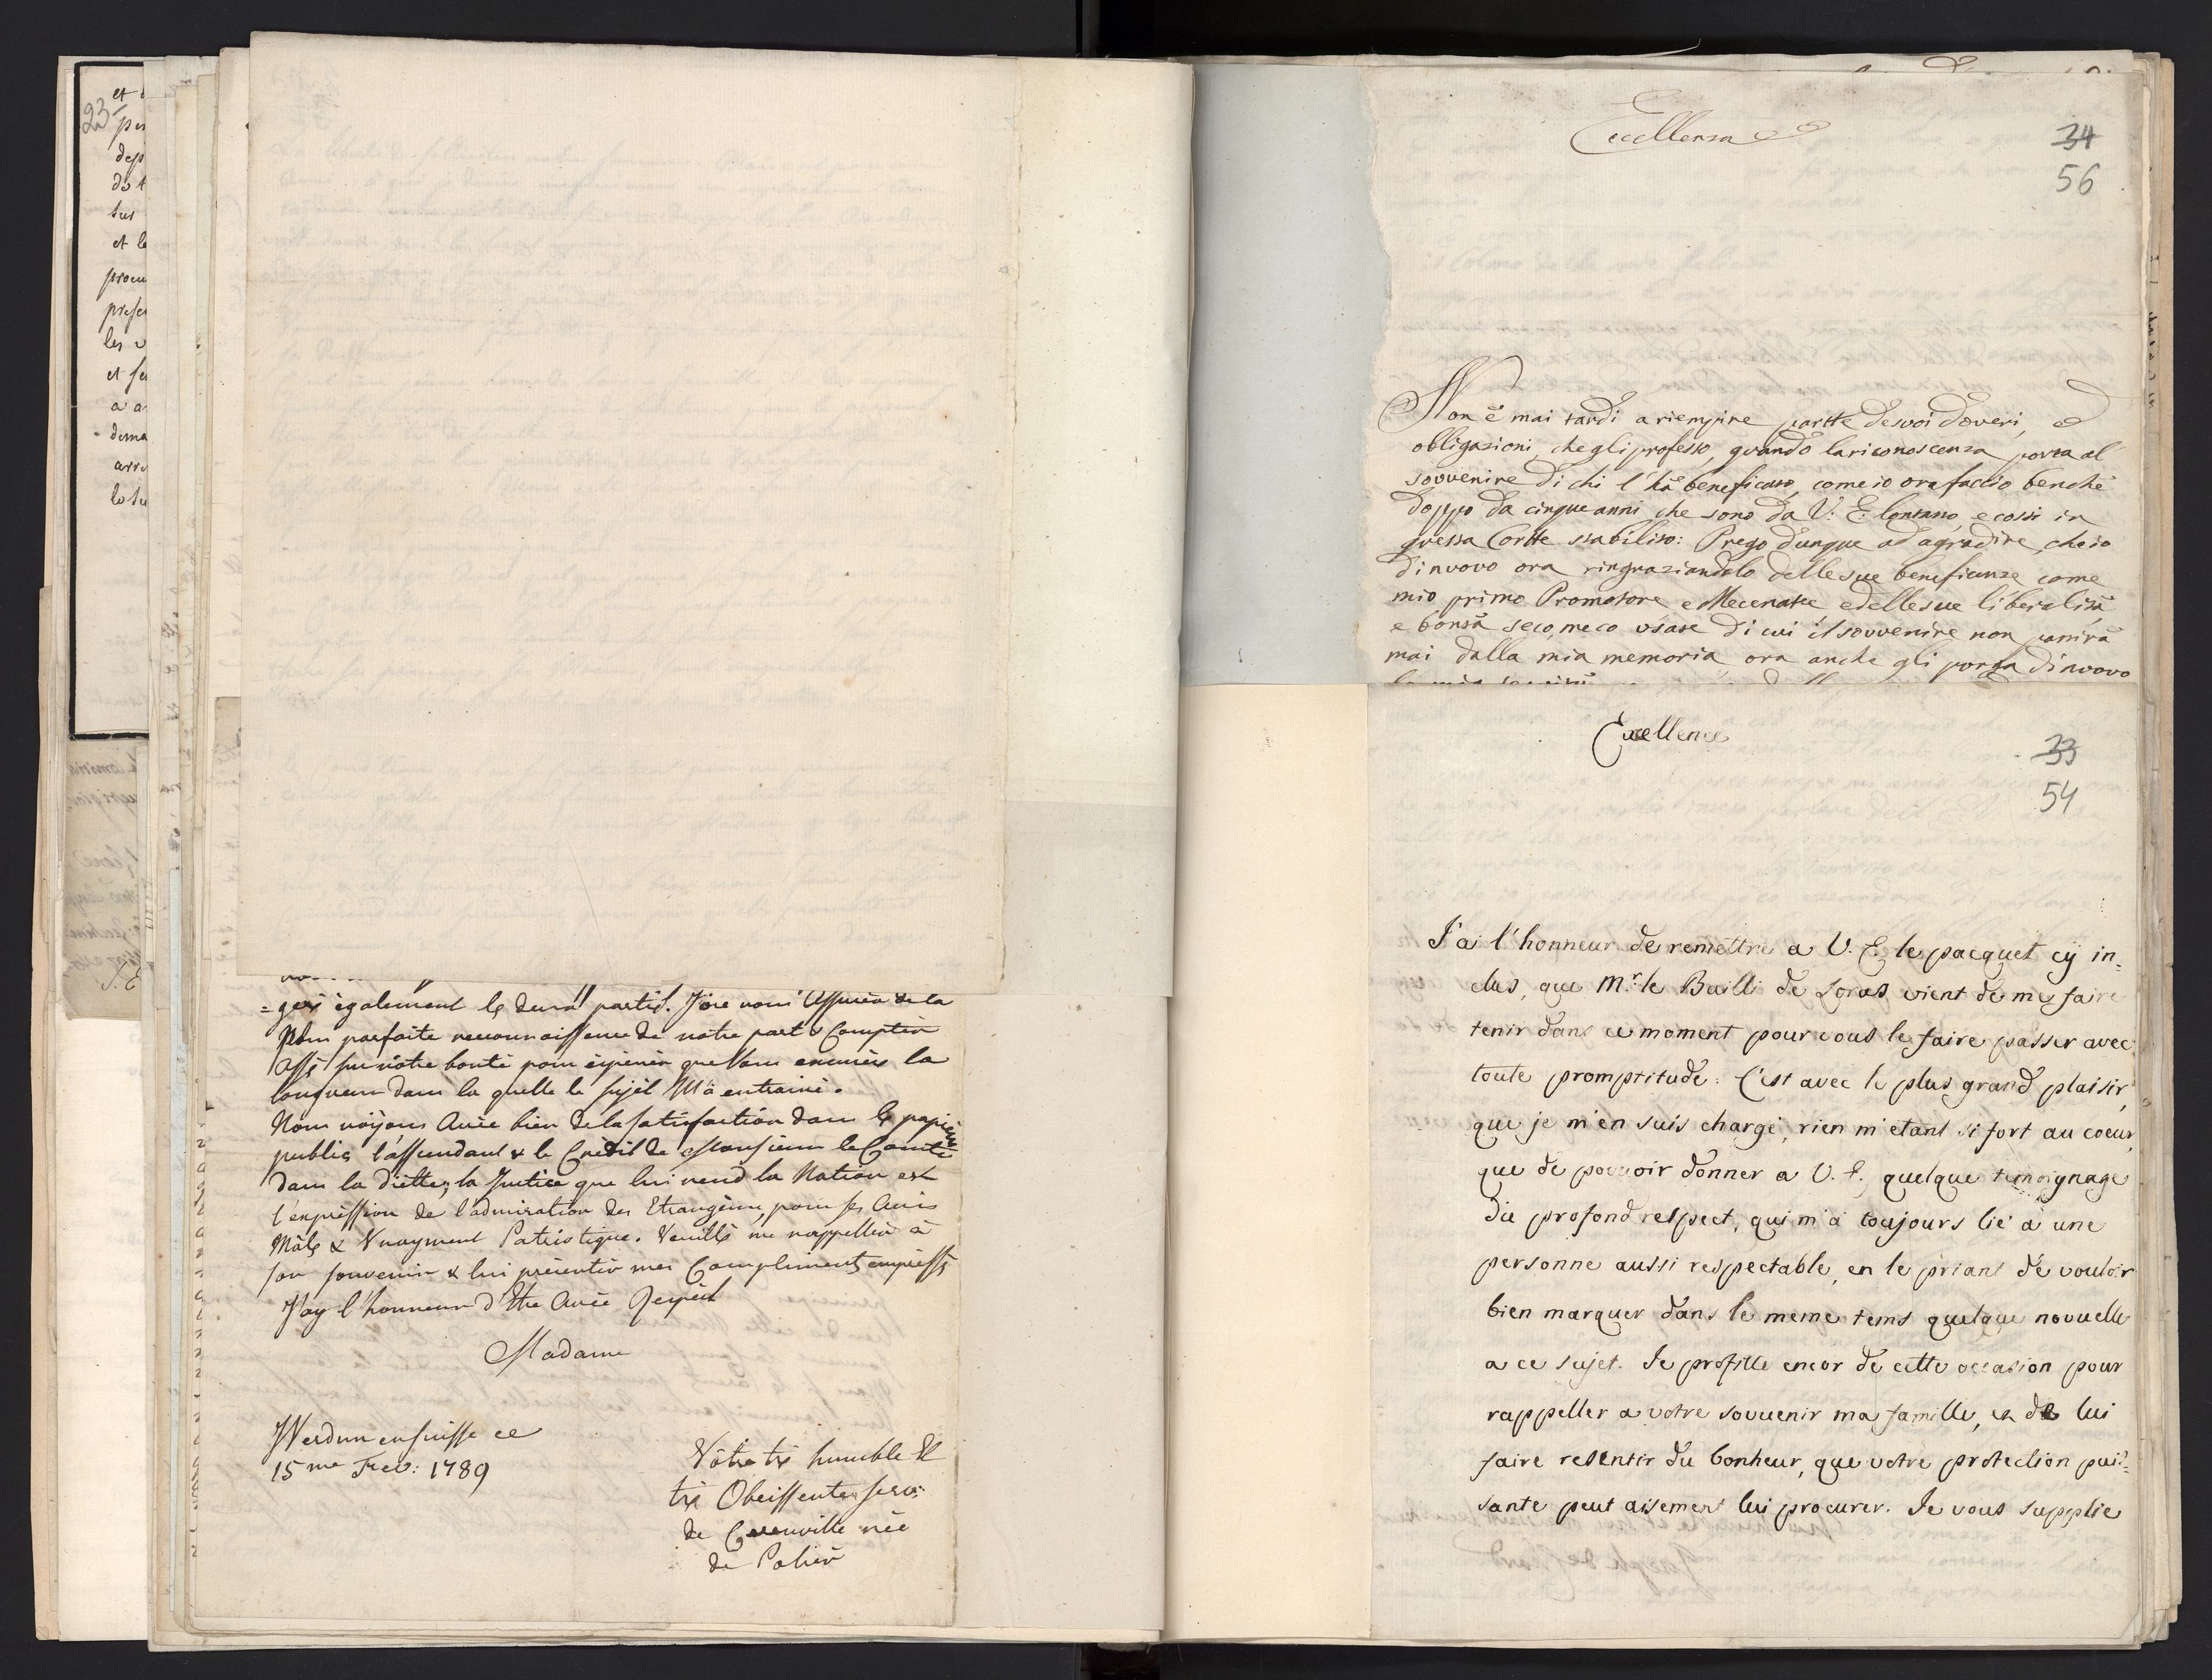 23
et
dep
sur
et le
procu
prese
les
a a
dema
=gés également les deux partis. J'ose vous Assurer de la
Plus parfaite reconnaissance de notre part & Compter
Assés sur vôtre bonté pour espérer que Vous excusiés la
longueur dans la quelle le sujet M'à entrainé.
Nous voÿons Avéc bien de la satisfaction dans les papiers
publics l'assendant & le Crédit de Monsieur le Comte
dans la diette, la Justice que lui rend la Nation est
l'expréssion de l'admiration des Etrangers, pour ses Avis
Mâles & Vrayment Patriotique. Veuillés me rappeller à
son souvenir & lui présenter mes Compliments empréssés
J'ay l'honneur d'Etre Avéc Respéct
Madame
Yverdun en suisse ce
15me Fev: 1789
Vôtre trés humble Et
trés Obeissente serv:
de née
de Polier
Eccellenza
34
56
Non è mai tardi a riempire partte de suoi doveri, ed
obligazioni, che gli professo, quando la riconoscenza porta al
sovvenire di chi l'hà beneficato, come io ora faccio benchè
doppo da cinque anni che sono da V: E: lontano, e cossi in
questa Cortte stabilito: Prego dunque ad agradire, che io
di nuovo ora ringraziandolo delle sue beneficenze come
mio primo Promotore e Mecenate e delle sue liberalità
e bontà seco, meco usate di cui il sovvenire non partirà
mai dalla mia memoria ora anche gli porga di nuovo
Excellence
33
54
J'ai l'honneur de remettre a V. E. le pacquet cÿ in=
clus, que Mr. le Bailli de Loras vient de me faire
tenir dans ce moment pour vous le faire passer avec
toute promptitude. C'est avec le plus grand plaisir,
que je m'en suis chargé, rien m'etant si fort au coeur,
que de pouvoir donner a V. E. quelque temoignage
du profond respect, qui m'a toujours lié a une
personne aussi respectable, en le priant de vouloir
bien marquer dans le meme tems quelque nouvelle
a ce sujet. Je profitte encor de cette occasion pour
rappeller a votre souvenir ma famille, et de lui
faire resentir du bonheur, que votre protection puis=
sante peut aisement lui procurer. Je vous supplie